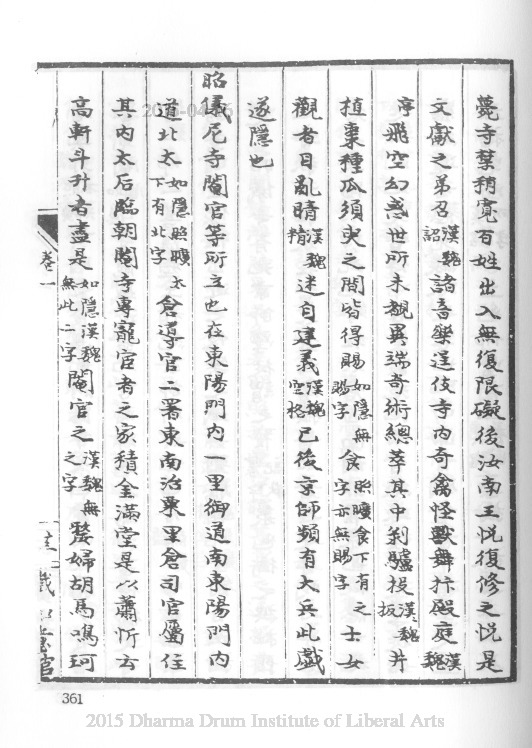 薨寺禁稍寬百姓出入無復限礙後汝南王悅復修之悅是
文獻之弟召漢魏詔諸音樂逞伎寺内奇禽怪獸舞抃殿庭漢魏
亭飛空幻惑世所未覩異端奇術總萃其中剝驢投漢魏扳井
植棗種瓜須臾之間皆得賜如隱無賜字食照曠食下有之字亦無賜字士女
觀者目亂睛漢魏精迷自建義漢魏空格已後京師頻有大兵此戲
遂隱也
昭儀尼寺閹官等所立也在東陽門内一里御道南東陽門内
道北太如隱照曠太下有北字倉導官二署東南治粟里倉司官屬住
其内太后臨朝閹寺專寵宦者之家積金滿堂是以蕭忻云
高軒斗升者盡是如隱漢魏無此二字閹官之漢魏無之字嫠婦胡馬鳴珂
卷一
361
2015 Dharma Drum Institute of Liberal Arts